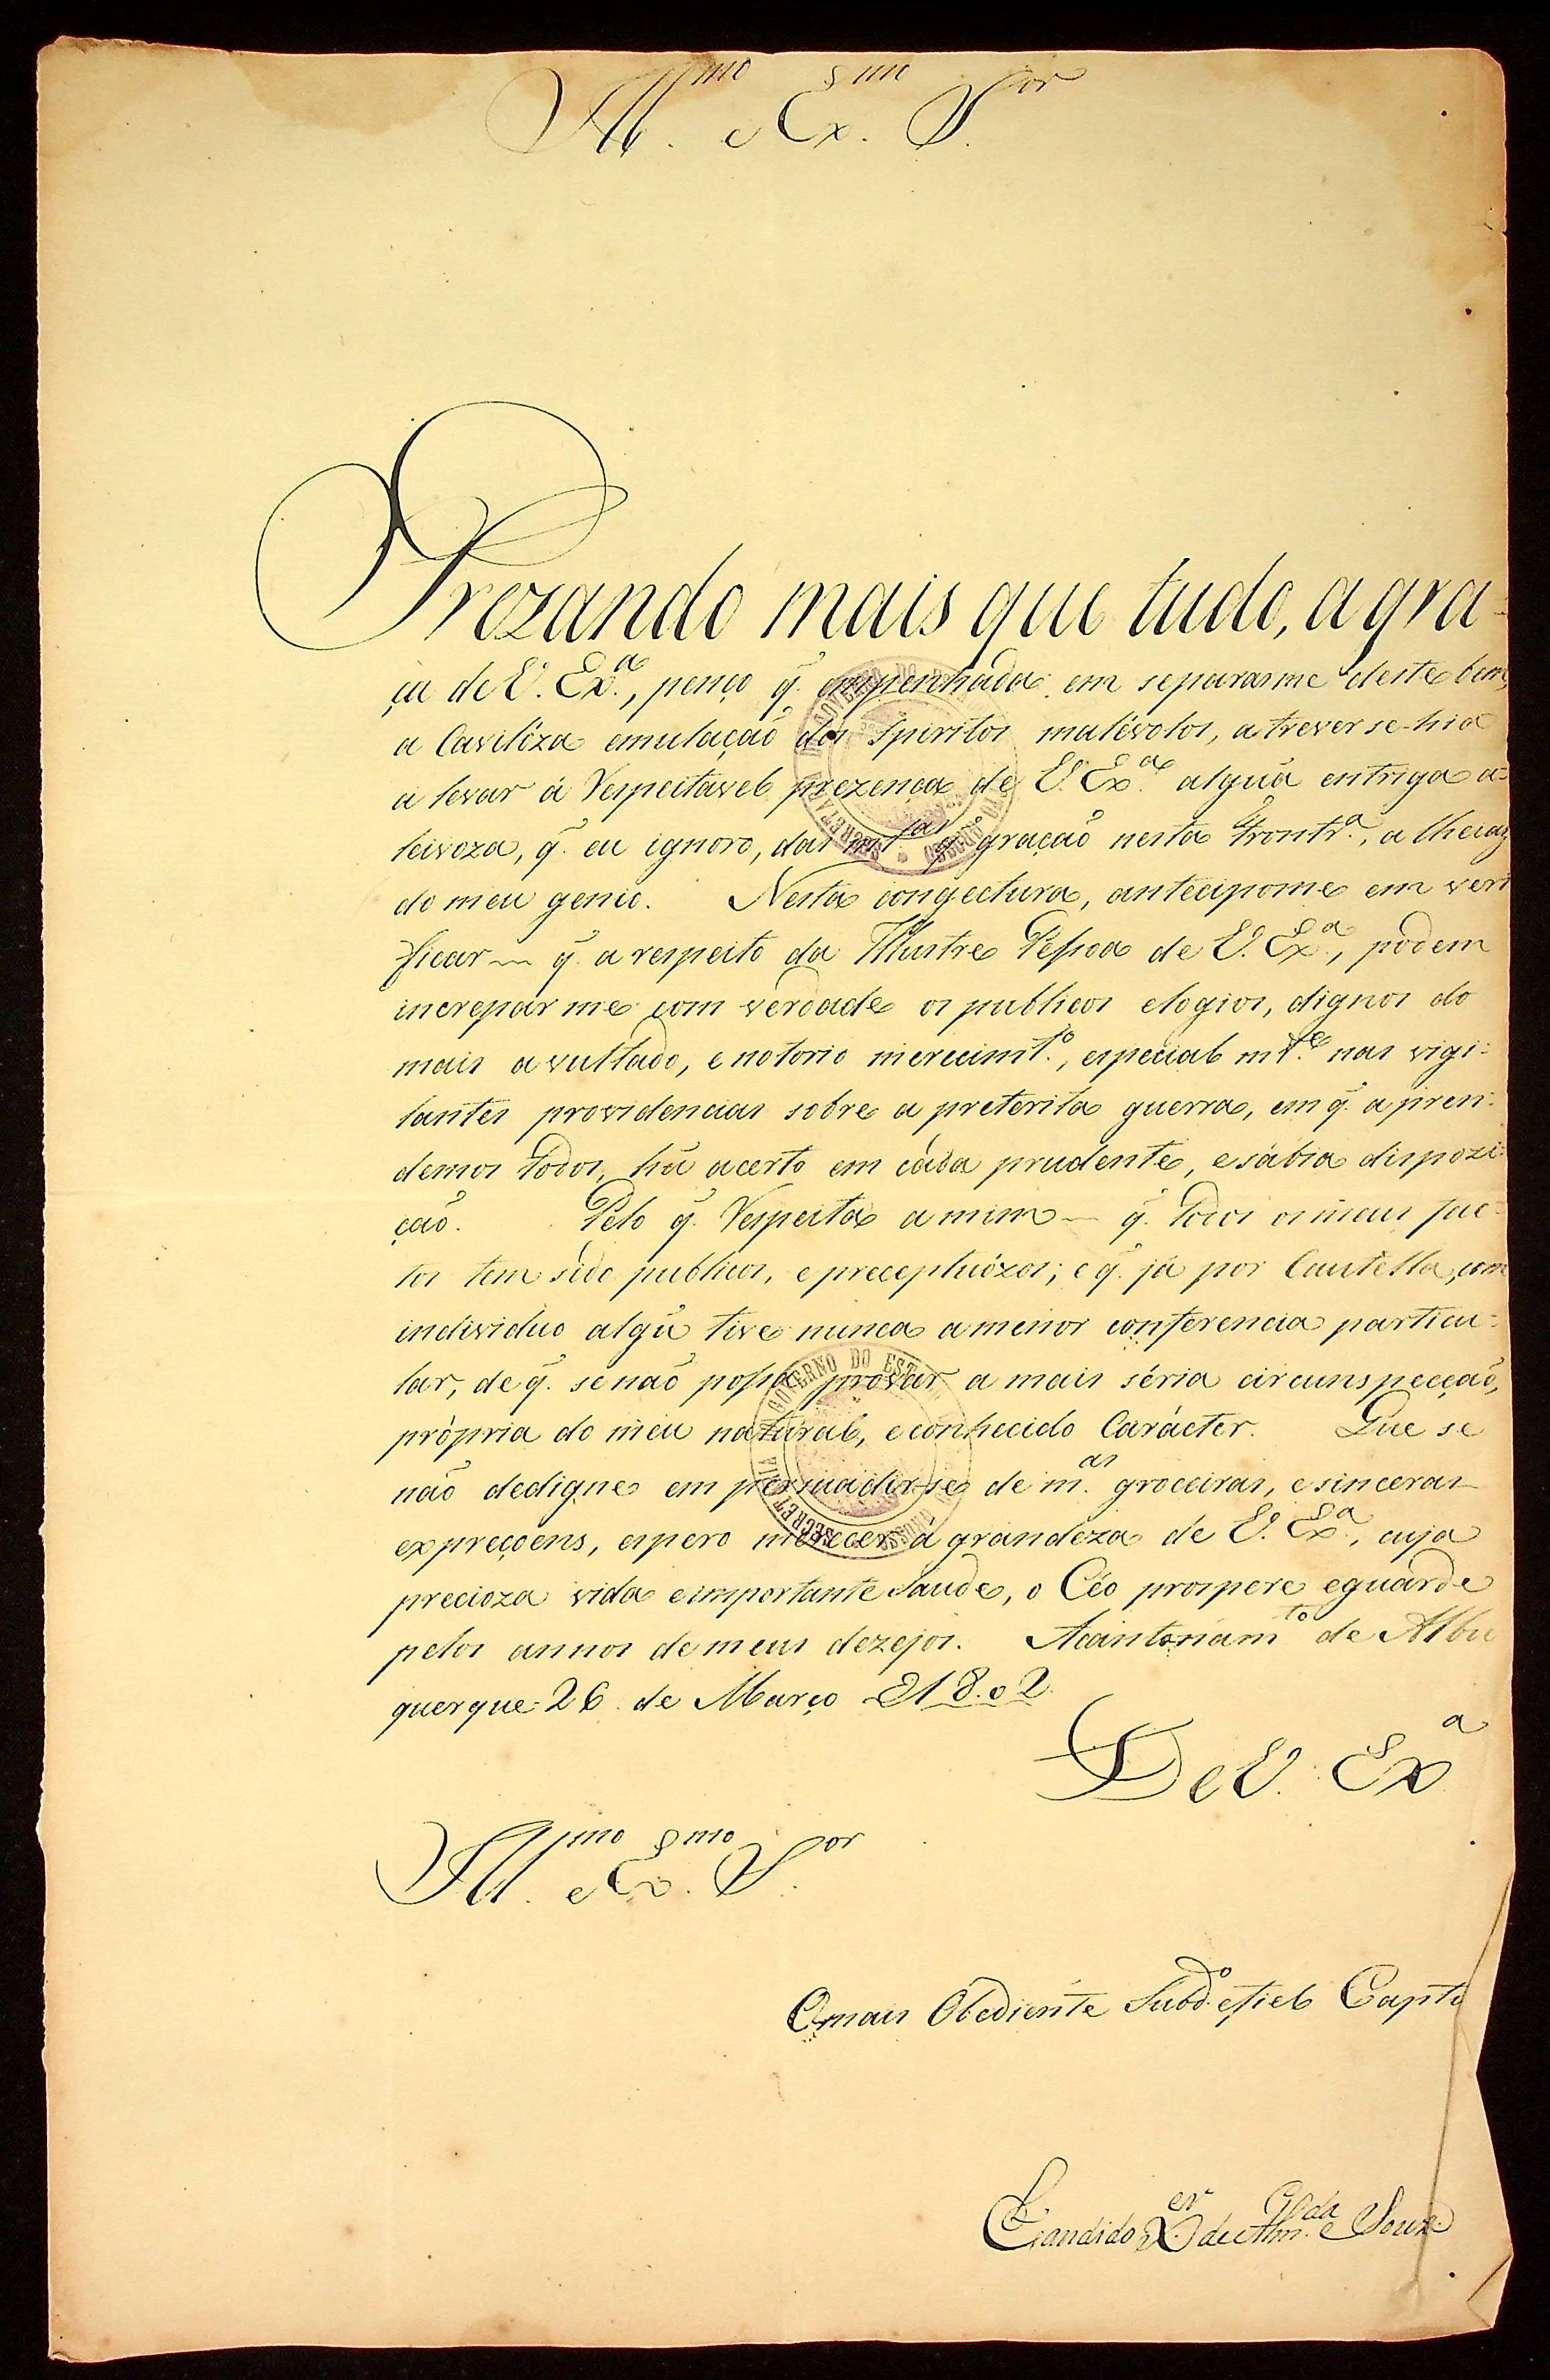 Ill.mo e Ex.mo S.or
Prezando mais que tudo, a gra-
ça de V. Ex.a, penço q̃. empenhada em separarme deste bem,
a Cavilóza emulação dos Spiritos malévolos, atreverse-hia
a levar á Respeitavel prezença de V. Ex.a algũa entriga a-
leivoza, q̃. eu ignoro, das m.tas q̃ graçaõ nesta Front.ra, alheias
do meu genio. Nesta congectura, antecipome em veri
ficar — q̃. a respeito da Illustre Pessoa de V. Ex.a, podem
increparme com verdade os publicos elogios, dignos do
mais avultado, e notorio merecim.to, especialm.te nas vigi-
lantes providencias sobre a preterita guerra, em q̃. apren-
demos todos, hũ acerto em cáda prudente, e sábia dispozi-
çaõ. Pelo q̃. Respeita a mim — q̃. todos os meus fac-
tos tem sido publicos, e preceptuózos; e q̃. já por Cautella, com
individuo algũ tive nunca a menor conferencia particu-
lar, de q̃. se naõ possa provar a mais séria circunspecçaõ,
própria do meu natural, e conhecido Carácter. Que se
naõ dedigne em persuadir-se de m.as groceiras, e sinceras
expreçoens, espero merecer á grandeza de V. Ex.a, cuja
precioza vida e importante Saude, o Céo prospere e guarde
pelos annos de meus dezejos. Acantonam.to de Albu
querque 26 de Março D 1802
De V. Ex.a
Ill.mo e Ex.mo S.or
O mais Obediente Subd.o e fiel Capt.o
Candido X.er de Alm.da e Souza
SECRETARIA DO GOVERNO DO ESTADO DE MATTO GROSSO
SECRETARIA DO GOVERNO DO ESTADO DE MATTO GROSSO